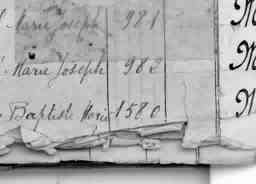 Marie Joseph 981
Marie Joseph 982
Baptiste Marie 1580